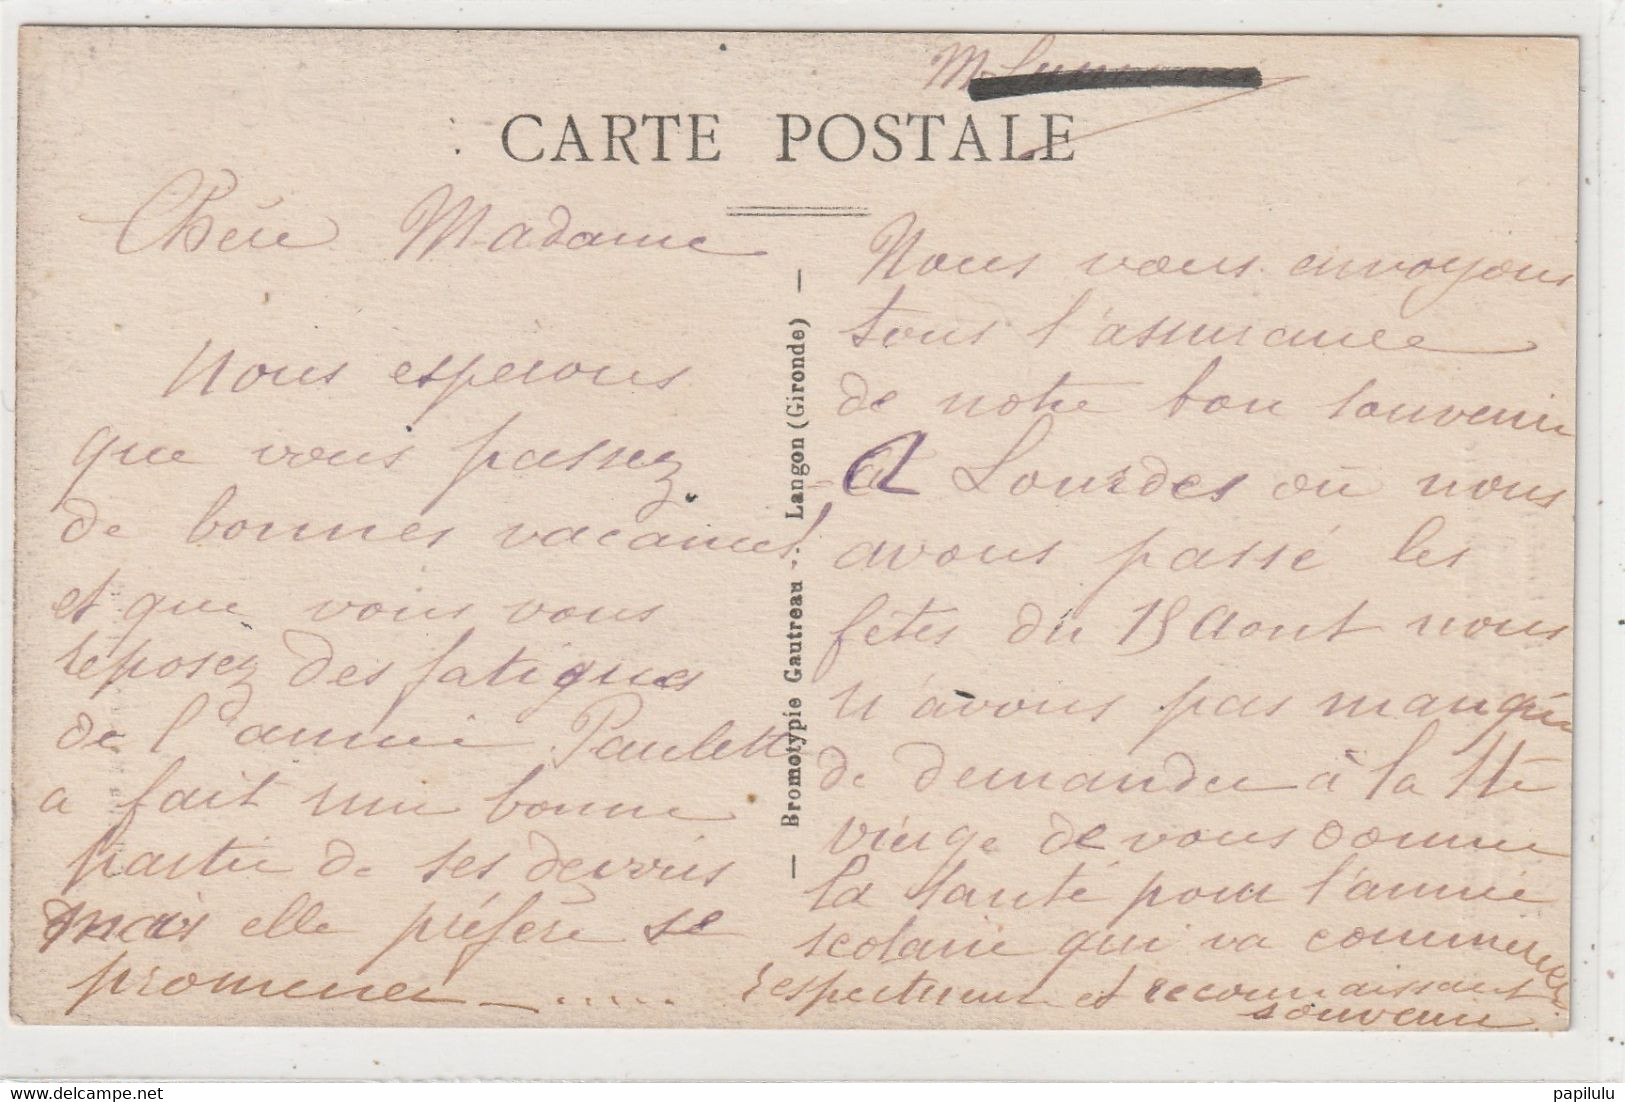 CARTE POSTALE
Chère Madame
Nous espérons
que vous passez
de bonnes vacances
et que vous vous
reposez des fatigues
de l'année Paulette
a fait une bonne
partie de ses devoirs
mais elle préfère se
promener - .....
Bromotypie Gautreau - Langon (Gironde)
Nous vous envoyons
tous l'assurance
de notre bon souvenir
à Lourdes où nous
avons passé les
fêtes du 15 Aout nous
n'avons pas manquée
de demander à la Ste
vierge de vous donner
la santé pour l'année
scolaire qui va commencer
respectueux et reconnaissant
souvenir
papilulu